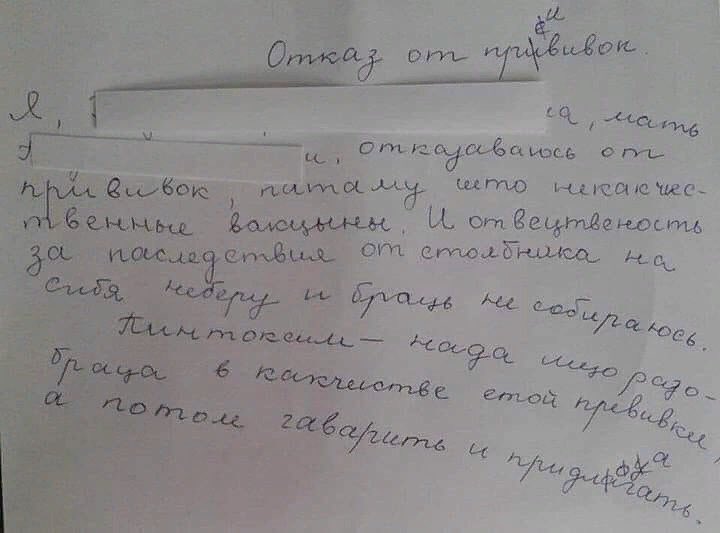 Отказ от прививок.
Я, на, мать
и, отказаваюсь от
прививок, патаму што некакчес-
твенные вакцыны. И отвецтвеность
за паследствия от столбняка на
сибя неберу и браць не собираюсь.
Пинтоксим – нада ищо разо-
браца в какчистве етой превивки,
а потом гаварить и придлагать.